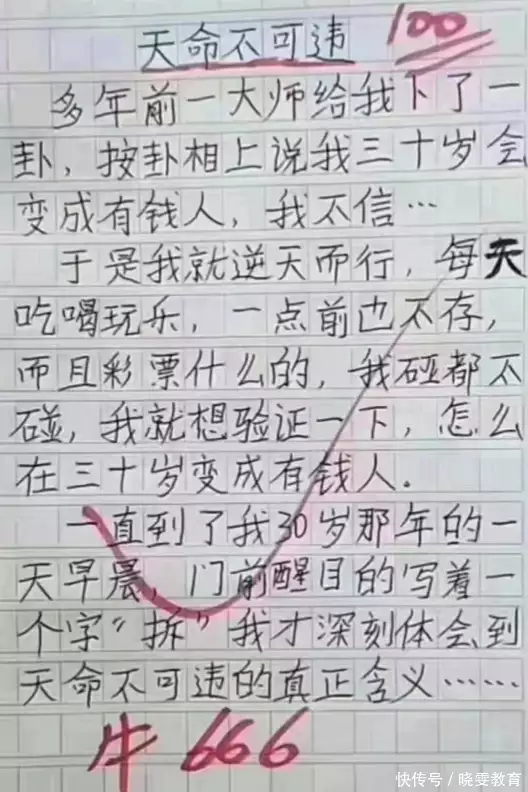 天命不可违 100
多年前一大师给我下了一
卦,按卦相上说我三十岁会
变成有钱人,我不信…
于是我就逆天而行,每天
吃喝玩乐,一点前也不存,
而且彩票什么的,我碰都不
碰,我就想验证一下,怎么
在三十岁变成有钱人.
一直到了我30岁那年的一
天早晨,门前醒目的写着一
个字"拆"我才深刻体会到
天命不可违的真正含义……
牛 666
快传号/晓雯教育